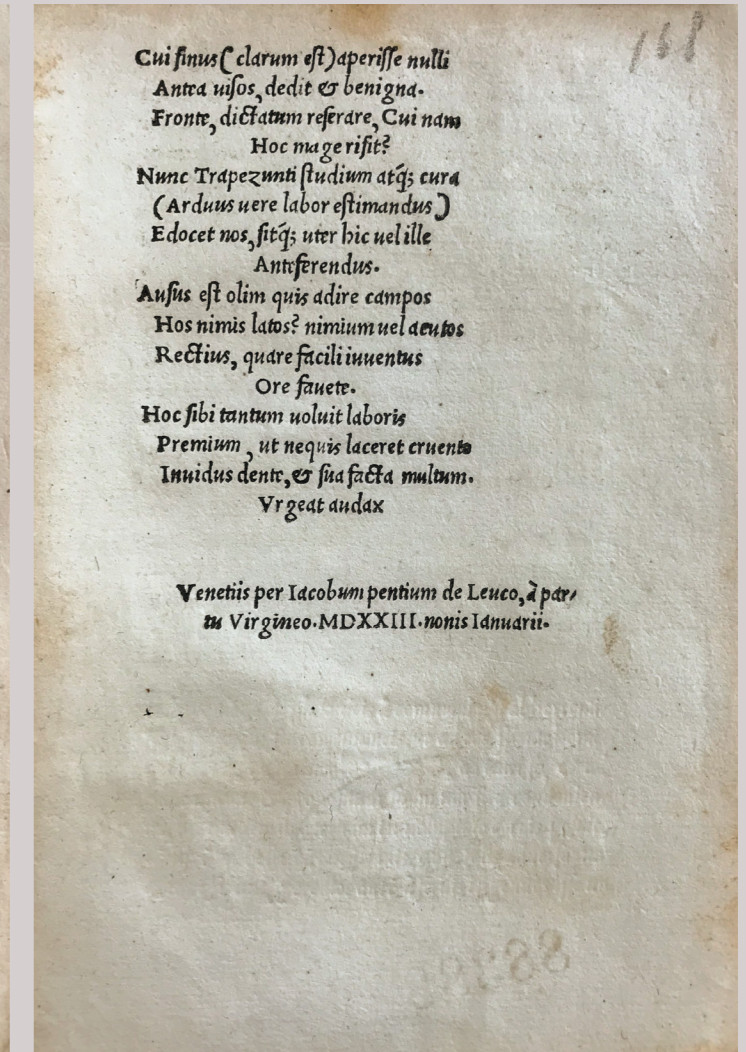 168
Cui sinus ( clarum est ) aperisse nulli
Antea uisos, dedit & benigna.
Fronte, dictatum reserare, Cui nam
Hoc mage risit?
Nunc Trapezunti studium atq́; cura
(Arduus uere labor estimandus)
Edocet nos, sitq́; uter hic uel ille
Anteferendus.
Ausus est olim quis adire campos
Hos nimis latos? nimium uel acutos
Rectius, quare facili iuuentus
Ore fauete.
Hoc sibi tantum uoluit laboris
Premium, ut nequis laceret cruento
Inuidus dente, & sua facta multum.
Vrgeat audax
Venetiis per Iacobum pentium de Leuco, à par-
tu Virgineo. MDXXIII. nonis Ianuarii.